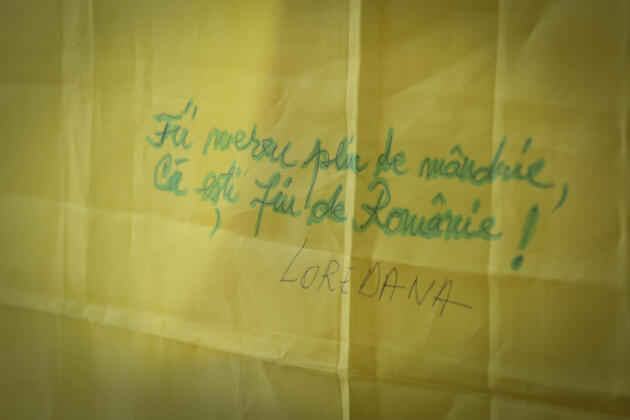 Fii mereu plin de mândrie,
Că ești fiu de Românie!
LOREDANA